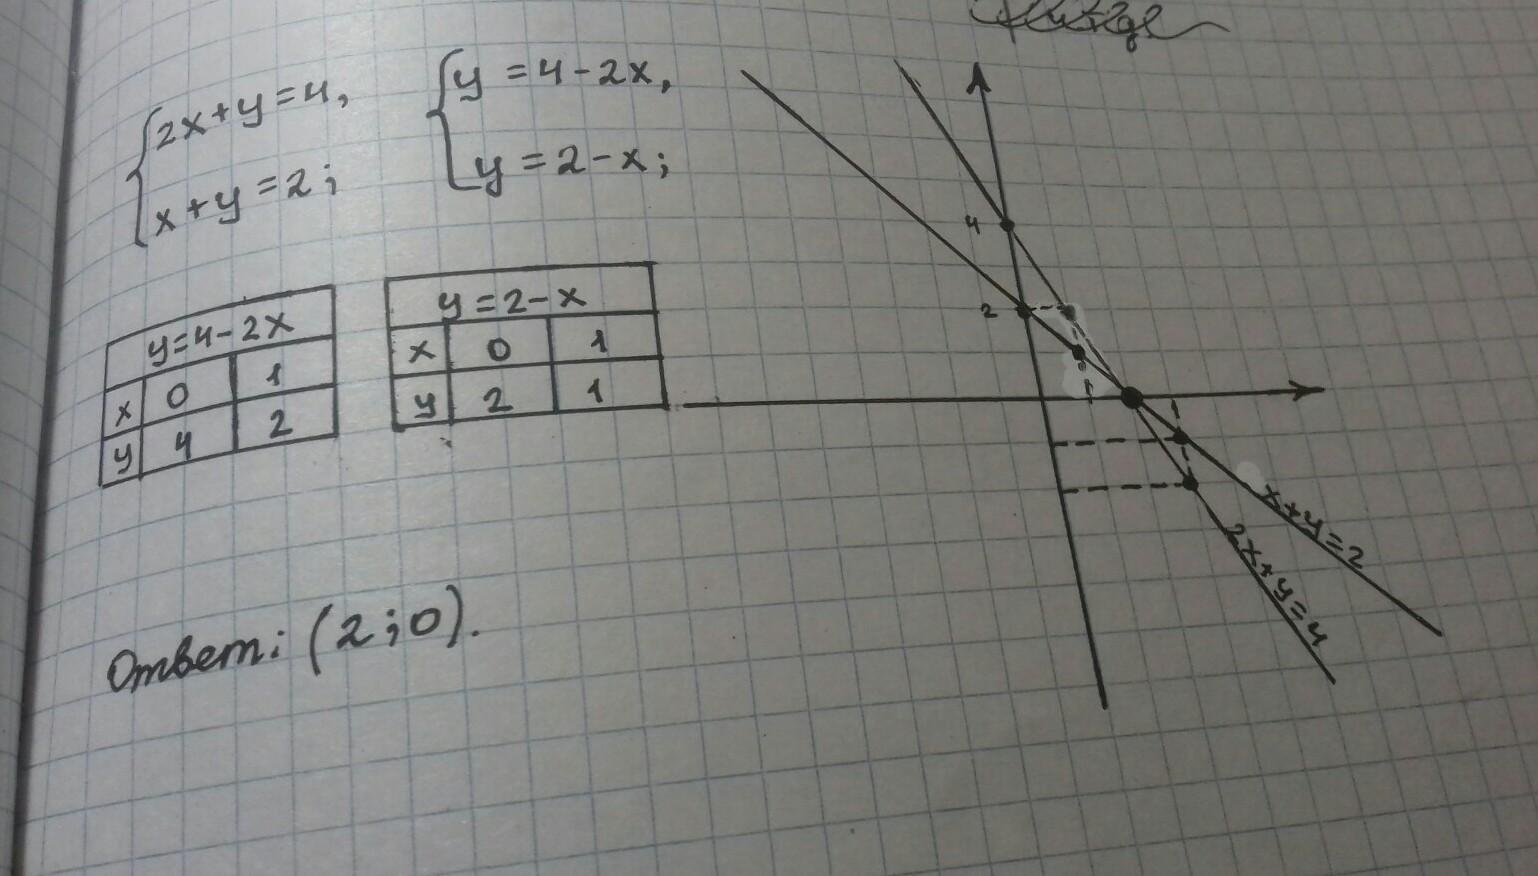 2x+y=4,
x+y=2;
y=4-2x,
y=2-x;
y=4-2x
x 0 1
y 4 2
y=2-x
x 0 1
y 2 1
4
2
x+y=2
2x+y=4
Ответ: (2;0).